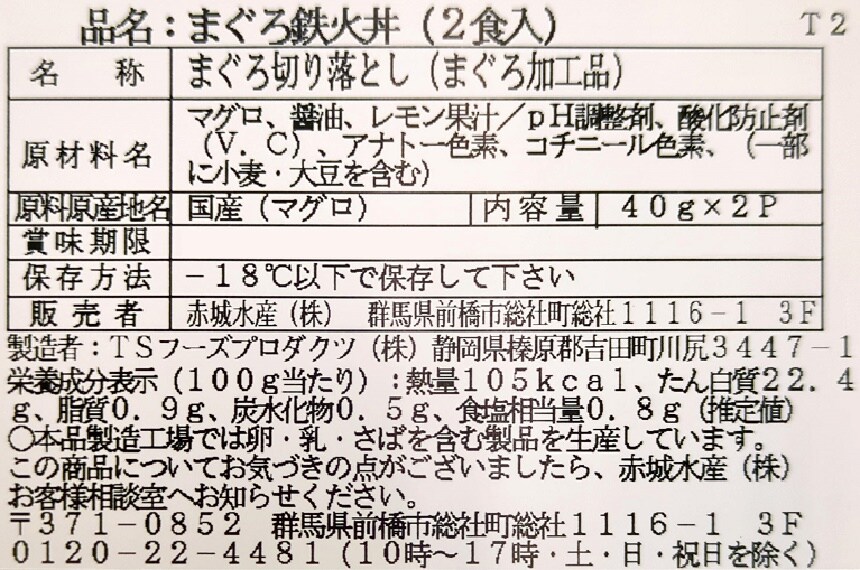 品名:まぐろ鉄火丼(2食入) T2
名称 まぐろ切り落とし(まぐろ加工品)
原材料名 マグロ、醤油、レモン果汁/pH調整剤、酸化防止剤
(V.C)、アナトー色素、コチニール色素、(一部
に小麦・大豆を含む)
原料原産地名 国産(マグロ) 内容量 40g×2P
賞味期限
保存方法 -18℃以下で保存して下さい
販売者 赤城水産(株) 群馬県前橋市総社町総社1116-1 3F
製造者:TSフーズプロダクツ(株)静岡県榛原郡吉田町川尻3447-1
栄養成分表示(100g当たり):熱量105kcal、たん白質22.4
g、脂質0.9g、炭水化物0.5g、食塩相当量0.8g(推定値)
○本品製造工場では卵・乳・さばを含む製品を生産しています。
この商品についてお気づきの点がございましたら、赤城水産(株)
お客様相談室へお知らせください。
〒371-0852 群馬県前橋市総社町総社1116-1 3F
0120-22-4481(10時~17時・土・日・祝日を除く)